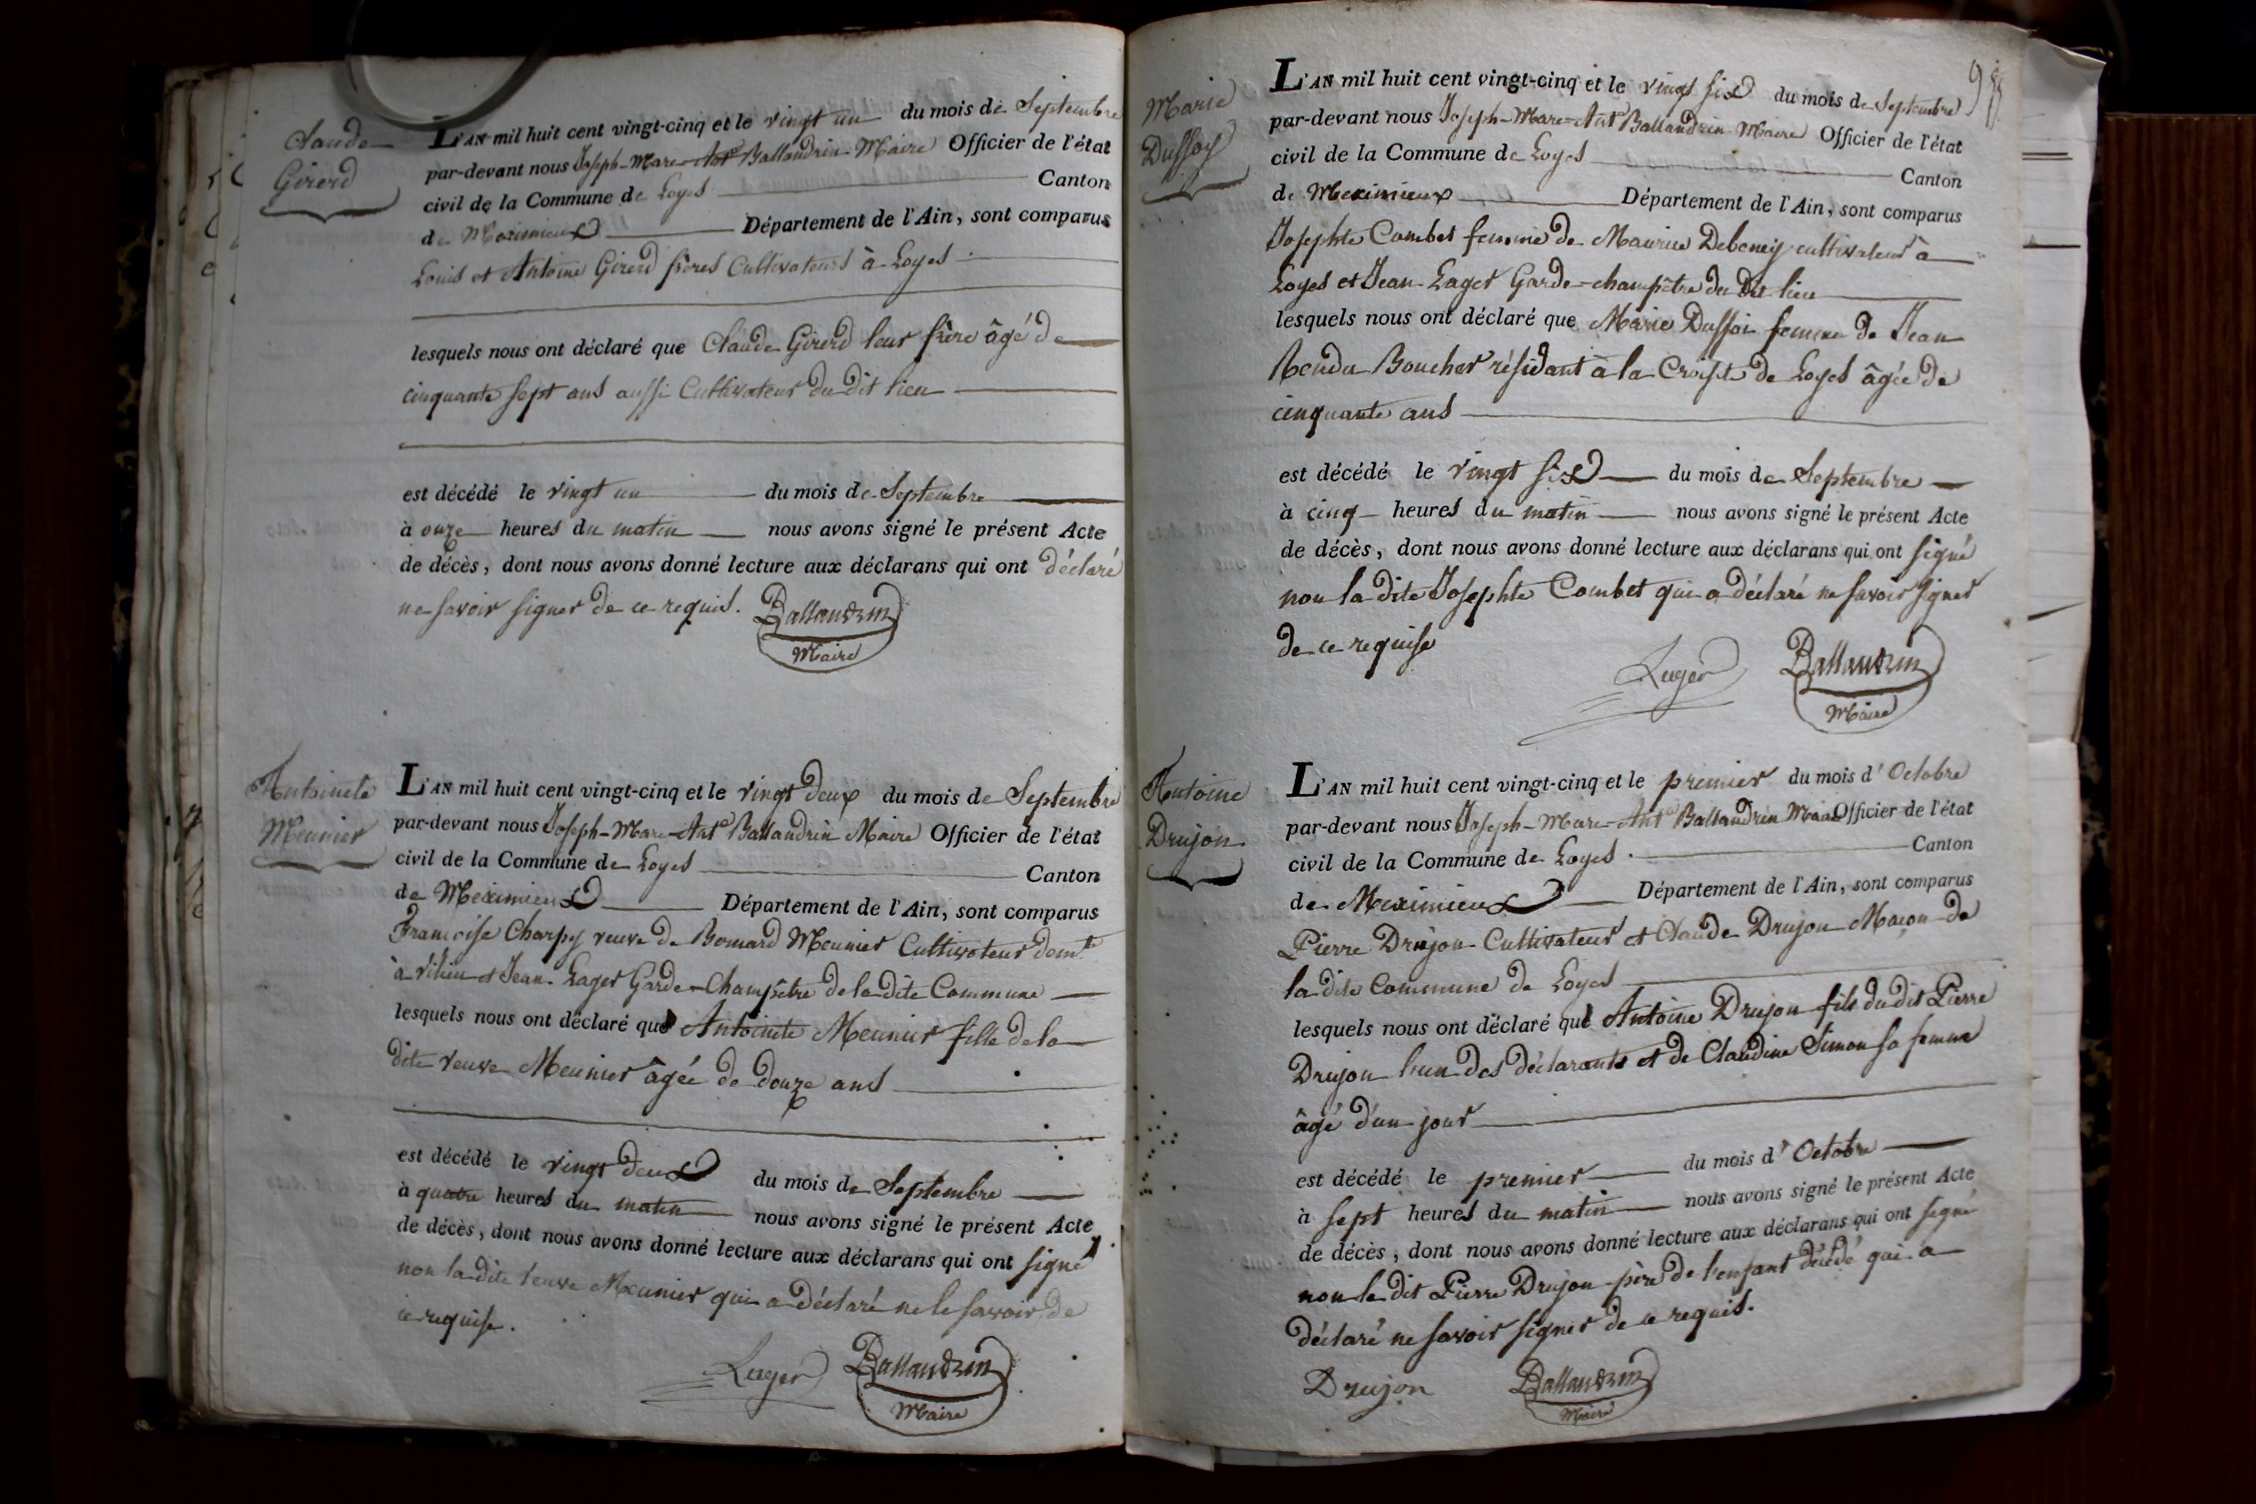 Claude
Girerd
L'AN mil huit cent vingt-cinq et le vingt un du mois de Septembre
par-devant nous Joseph-Marc-Ant.e Ballandrin Maire Officier de l'état
civil de la Commune de Loyes Canton
de Meximieux Département de l'Ain, sont comparus
Louis et Antoine Girerd frères Cultivateurs à Loyes
lesquels nous ont déclaré que Claude Girerd leur frère âgé de
cinquante sept ans aussi Cultivateur du dit lieu
est décédé le vingt un du mois de Septembre
à onze heures du matin nous avons signé le présent Acte
de décès, dont nous avons donné lecture aux déclarans qui ont déclaré
ne savoir signer de ce requis. Ballandrin
Maire
Antoinete
Meunier
L'AN mil huit cent vingt-cinq et le vingt deux du mois de Septembre
par-devant nous Joseph-Marc-Ant.e Ballandrin Maire Officier de l'état
civil de la Commune de Loyes Canton
de Meximieux Département de l'Ain, sont comparus
Françoise Charpy veuve de Meunier Cultivateur dem.t
à et Jean Lager Garde-Champêtre de la dite Commune
lesquels nous ont déclaré que Antoinete Meunier fille de la
dite veuve Meunier âgée de douze ans
est décédé le vingt deux du mois de Septembre
à quatre heures du matin nous avons signé le présent Acte
de décès, dont nous avons donné lecture aux déclarans qui ont signé
non la dite veuve Meunier qui a déclaré ne le savoir de
ce requise.
Lager Ballandrin
Maire
98
Marie
Duffoy
L'AN mil huit cent vingt-cinq et le vingt six du mois de Septembre
par-devant nous Joseph-Marc-Ant.e Ballandrin Maire Officier de l'état
civil de la Commune de Loyes Canton
de Meximieux Département de l'Ain, sont comparus
Josephte Combet femme de Maurice Debeney cultivateur à
Loyes et Jean Lager Garde-champêtre du dit lieu
lesquels nous ont déclaré que Marie Duffoi femme de Jean
Rendu Boucher résidant à la de Loyes âgée de
cinquante ans
est décédé le vingt six du mois de Septembre
à cinq heures du matin nous avons signé le présent Acte
de décès, dont nous avons donné lecture aux déclarans qui ont signé
non la dite Josephte Combet qui a déclaré ne savoir signer
de ce requise
Lager Ballandrin
Maire
Antoine
Drujon
L'AN mil huit cent vingt-cinq et le premier du mois d'Octobre
par-devant nous Joseph-Marc-Ant.e Ballandrin Maire Officier de l'état
civil de la Commune de Loyes Canton
de Meximieux Département de l'Ain, sont comparus
Pierre Drujon Cultivateur et Claude Drujon Maçon de
la dite Commune de Loyes
lesquels nous ont déclaré que Antoine Drujon fils du dit Pierre
Drujon l'un des déclarants et de Claudine Simon sa femme
âgé d'un jour
est décédé le premier du mois d'Octobre
à sept heures du matin nous avons signé le présent Acte
de décès, dont nous avons donné lecture aux déclarans qui ont signé
non le dit Pierre Drujon père de l'enfant décédé qui a
déclaré ne savoir signer de ce requis.
Drujon Ballandrin
Maire